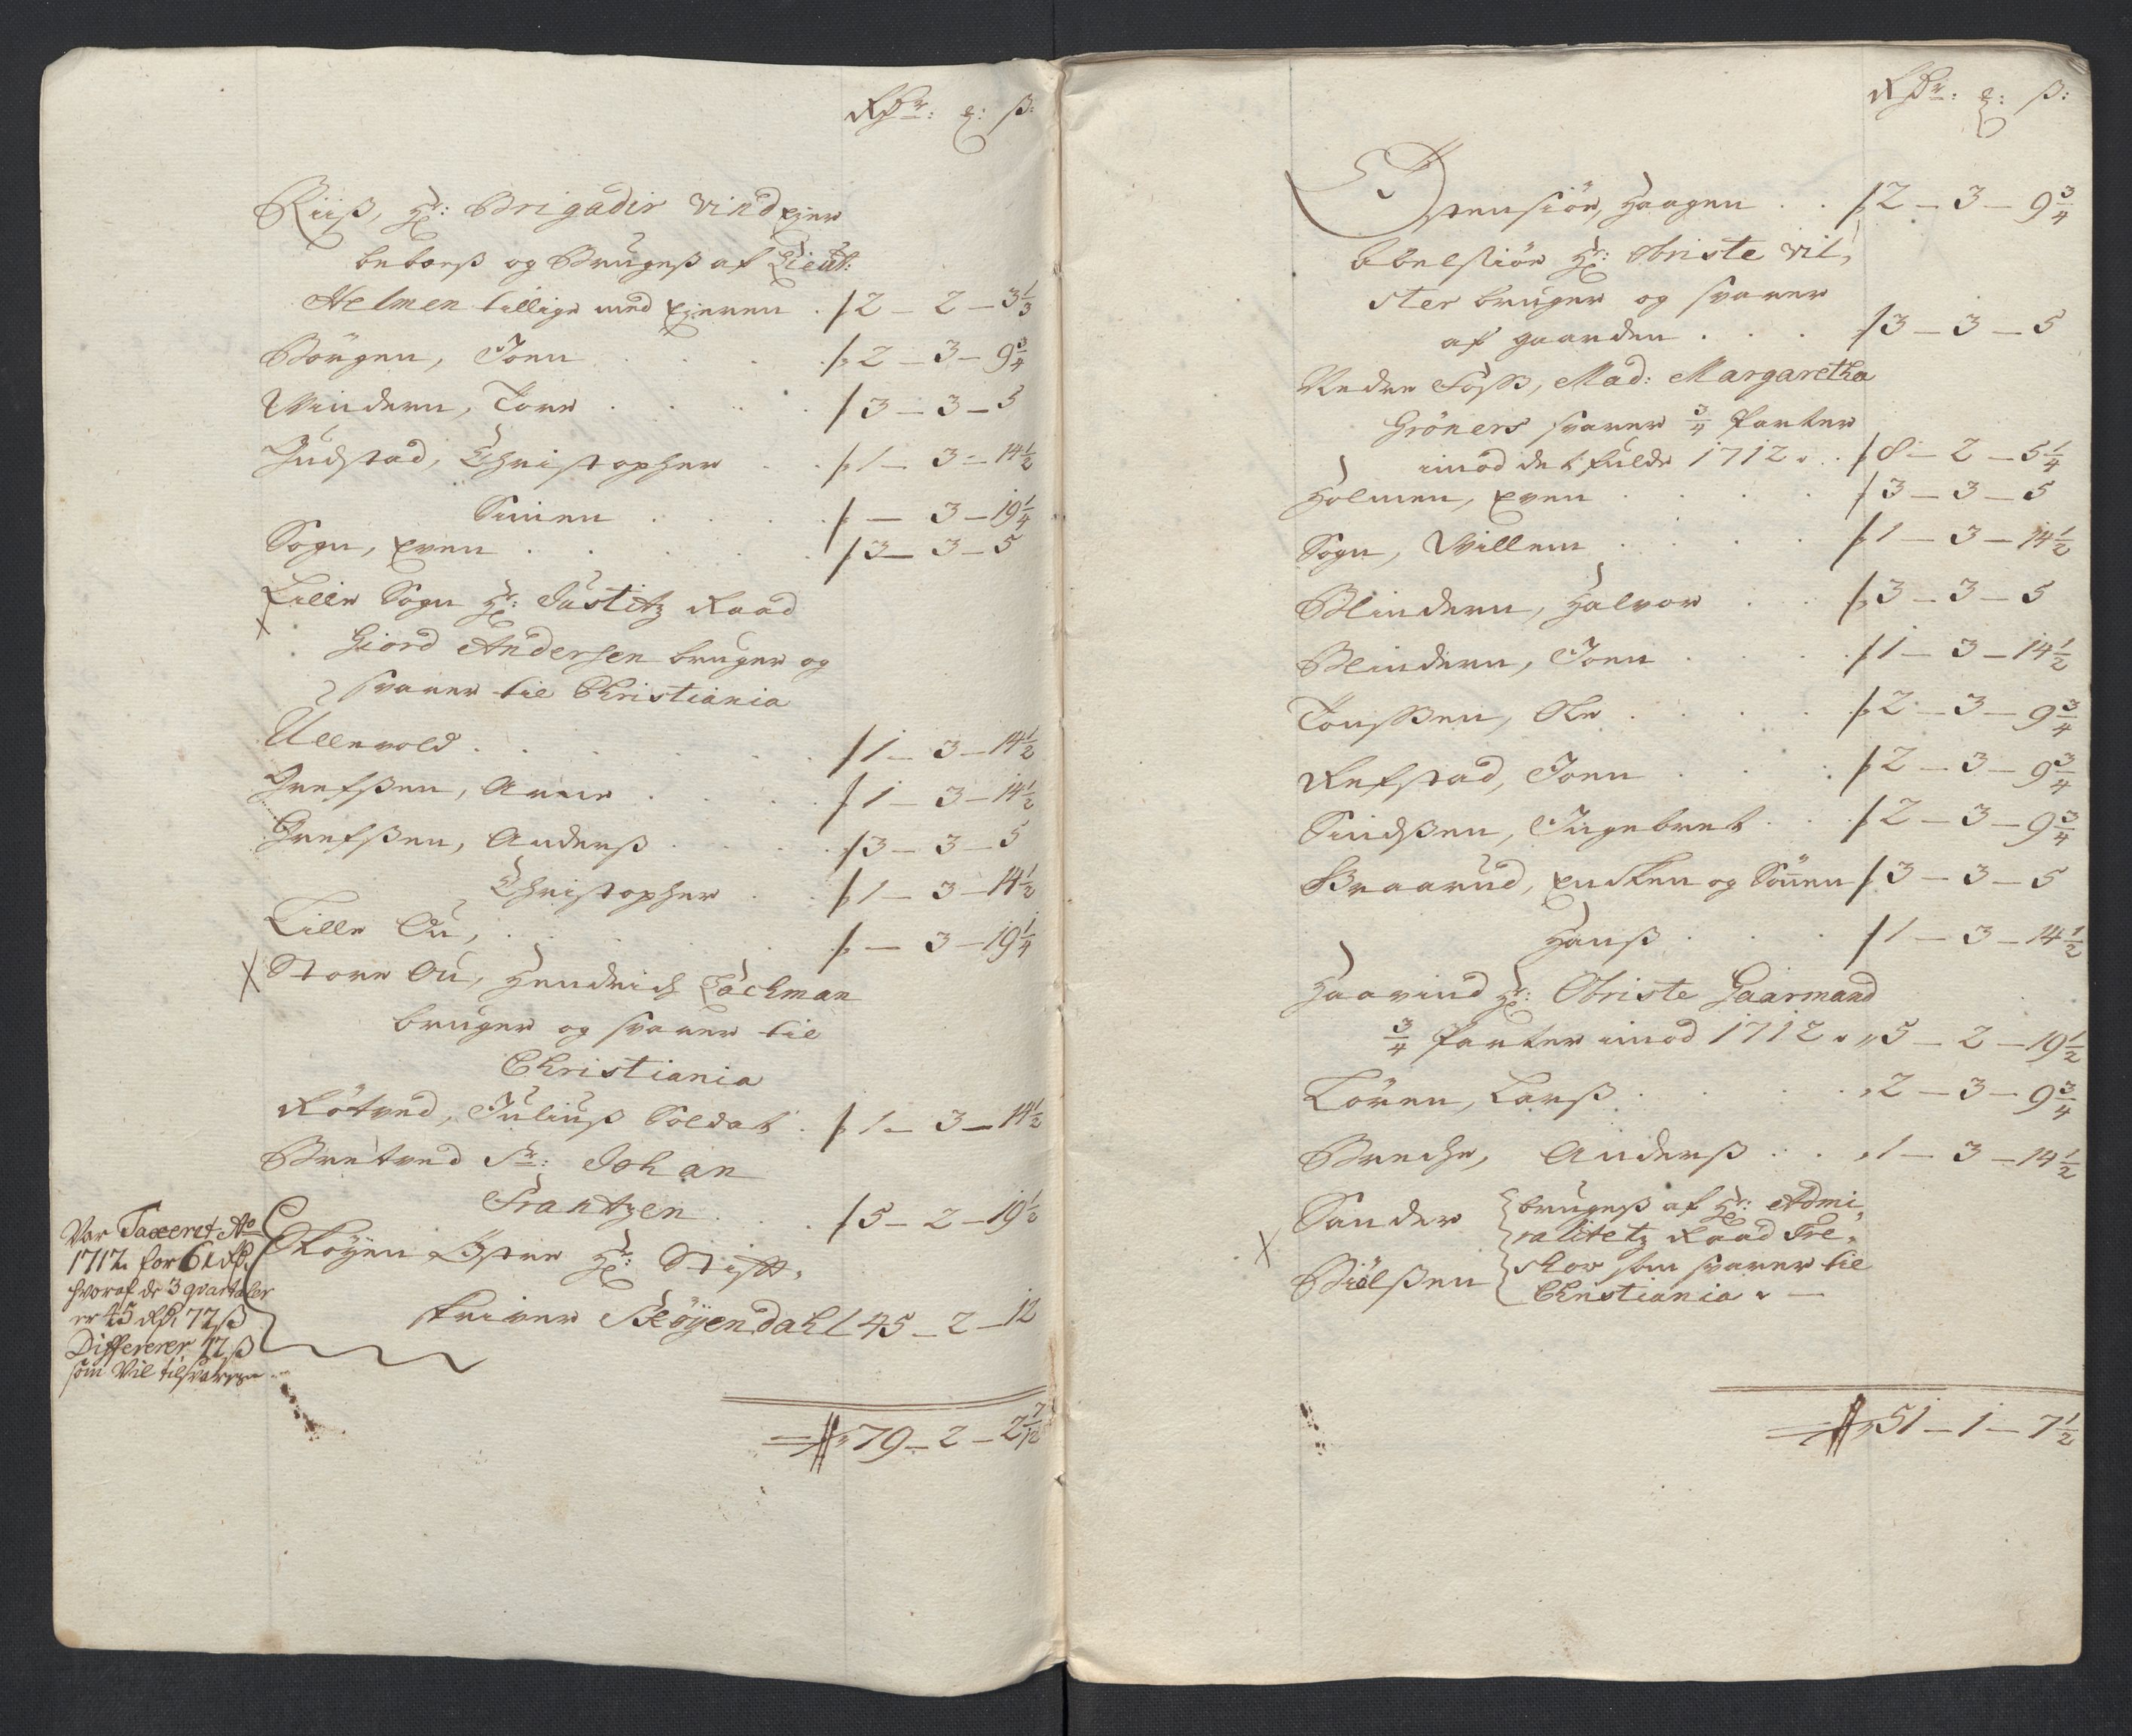 Rdr: ₰: ß:
Riiß, Hr: Brigadir Vind ejer
beboes og Brugeß af Lieut:
Helmen tillige med Ejeren . 2 – 2 – 3 1/3
Börgen, Joen . . . 2 – 3 – 9 3/4
Vindern, Tore . . . 3 – 3 – 5
Gudstad, Christopher . . 1 – 3 – 14 1/2
Simen . . . – 3 – 19 1/4
Sogn, Even . . . 3 – 3 – 5
X Lille Sogn Hr: Justitz Raad
Giord Andersen bruger og
svarer til Christiania
Ullevold . . . 1 – 3 – 14 1/2
Grefßen, Arne . . . 1 – 3 – 14 1/2
Grefßen, Anderß . . . 3 – 3 – 5
Christopher . . 1 – 3 – 14 1/2
Lille Ou, . . . – 3 – 19 1/4
X Store Ou, Hendrich Lachman
bruger og svarer til
Christiania
Rötved, Juliuß Soldat . 1 – 3 – 14 1/2
Bretved Sr: Johan
Frantzen . . . 5 – 2 – 19 1/2
Skøyen Östre Hr: Stift,
skriver Skøyendahl 45 – 2 – 12
Var Taxeret Ao
1712 for 61 rdr.
hvoraf de 3 qvartaler
er 45 rdr 72 ß
Differerer 12 ß
som Vil tilsvares
79 – 2 – 2 7/12
Rdr: ₰: ß:
Stensiör, Haagen . . 2 – 3 – 9 3/4
Abelsiör Hr: Obriste Vil,
ster bruger og svarer
af gaarden . . . 3 – 3 – 5
Nedre Foss, Mad: Margaretha
Gröners svarer 3/4 parter
imod det fulde 1712 . . 8 – 2 – 5 1/4
Holmen, Even . . . 3 – 3 – 5
Sogn, Villem . . . 1 – 3 – 14 1/2
Blindern, Halvor . . 3 – 3 – 5
Blindern, Joen . . . 1 – 3 – 14 1/2
Tonssen, Ole . . . 2 – 3 – 9 3/4
Refstad, Joen . . . 2 – 3 – 9 3/4
Sindßen, Ingebret . . 2 – 3 – 9 3/4
Braarud, Encken og Sönen 3 – 3 – 5
Hanß . . . 1 – 3 – 14 1/2
Haavind Hr: Obriste Gaarmand
3/4 parter imod 1712 . 5 – 2 – 19 1/2
Lören, Larß . . . 2 – 3 – 9 3/4
Breche, Anderß . . . 1 – 3 – 14 1/2
Sander brugeß af Hr: Admi,
ralitetz Raad Tre,
X Biölßen skov som svarer til
Christiania . –
51 – 1 – 7 1/2